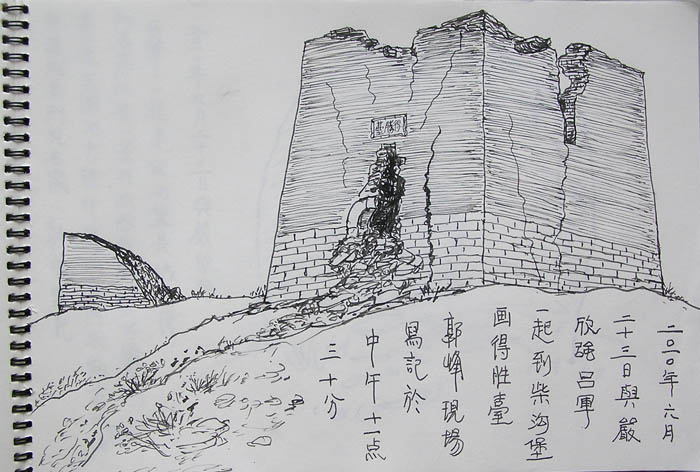 得勝臺
二〇一〇年六月
二十三日與嚴
欣強呂軍
一起到柴沟堡
画得胜臺
郭峰現場
寫記於
中午十一点
三十分